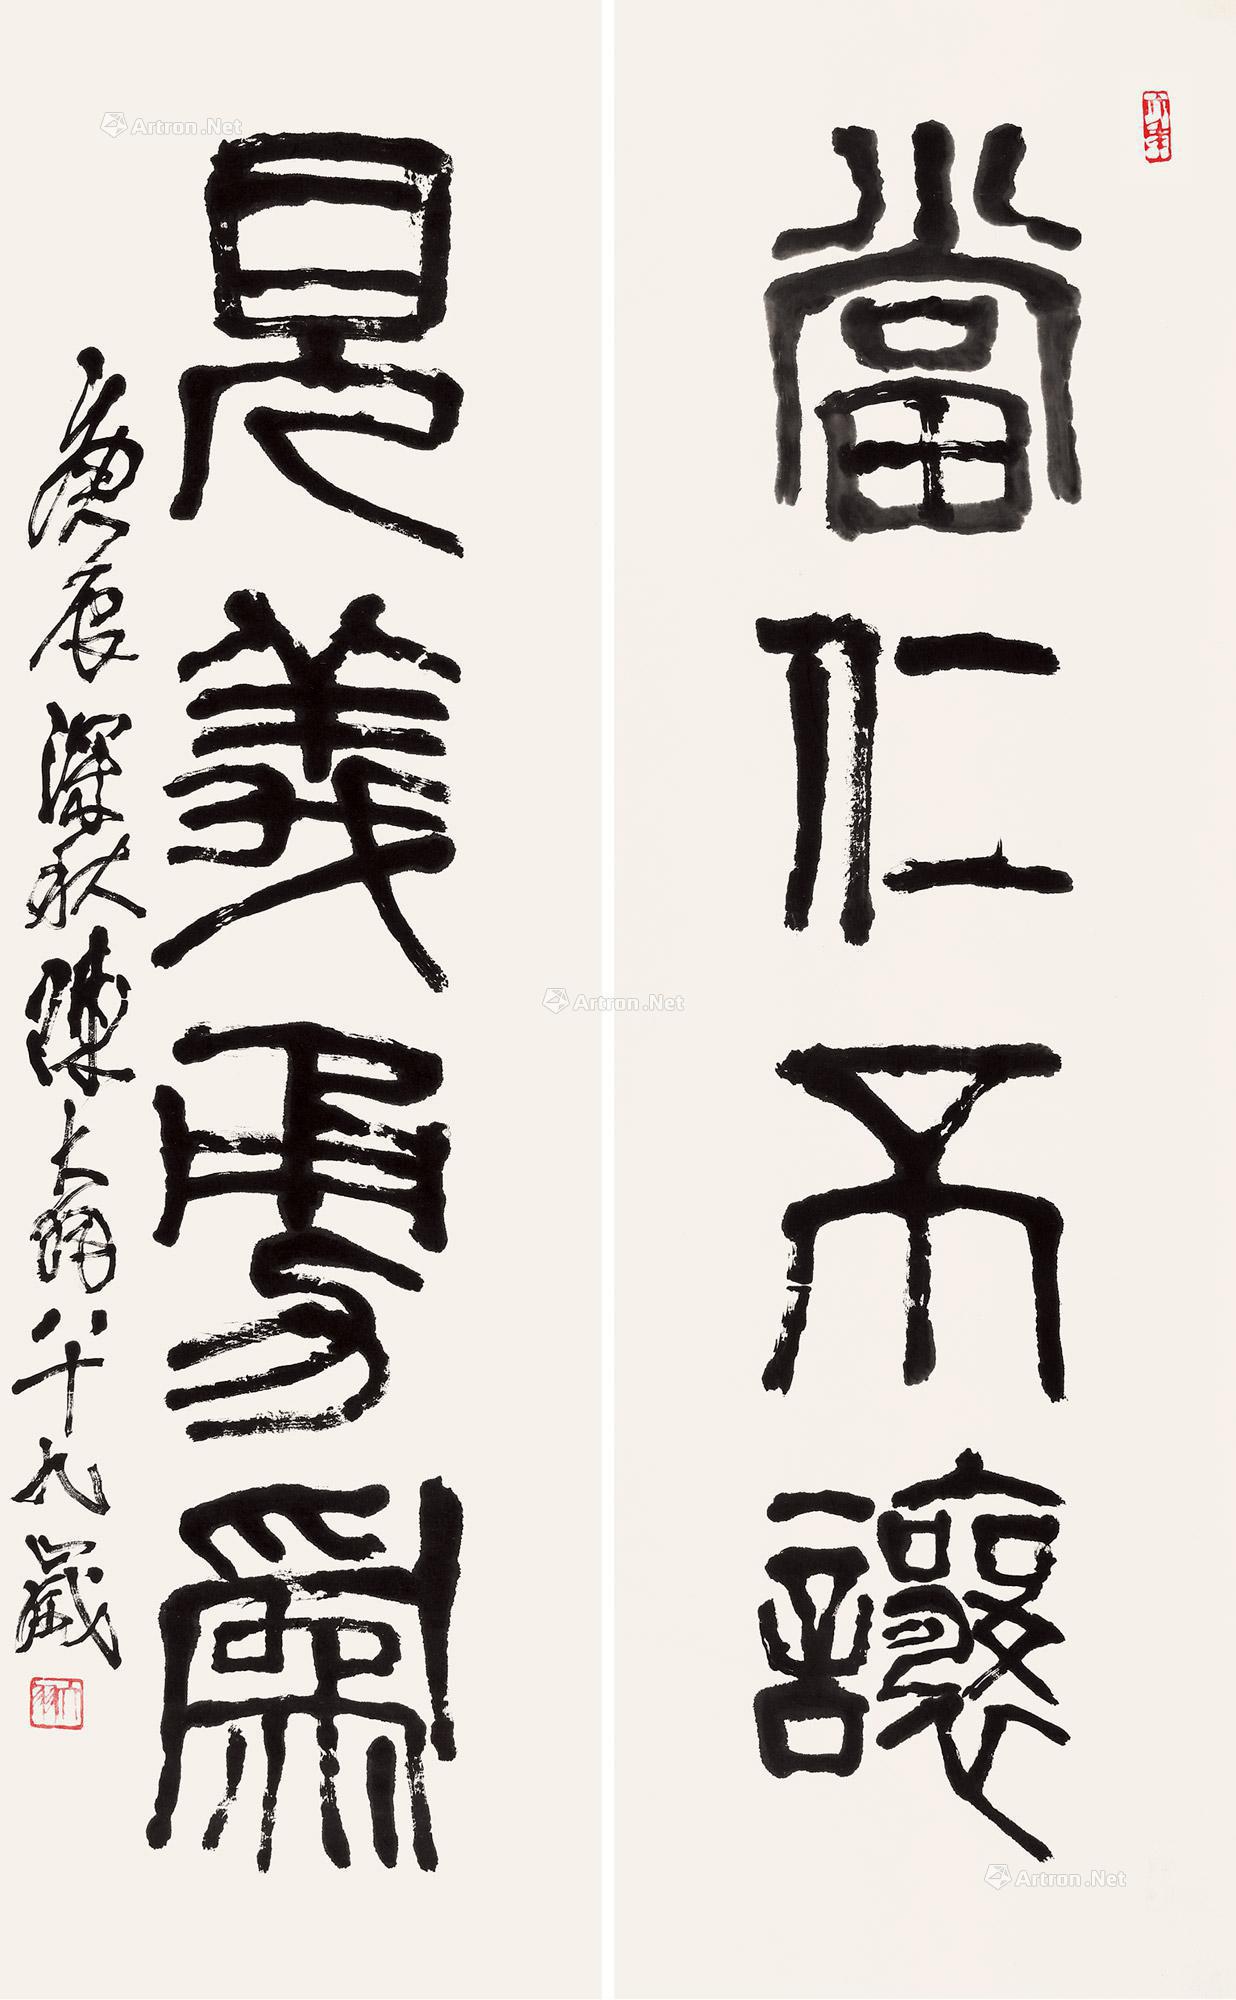 當仁不讓
見義勇爲
庚辰深秋陳大羽八十九歲
Artron.Net
Artron.Net
Artron.Net